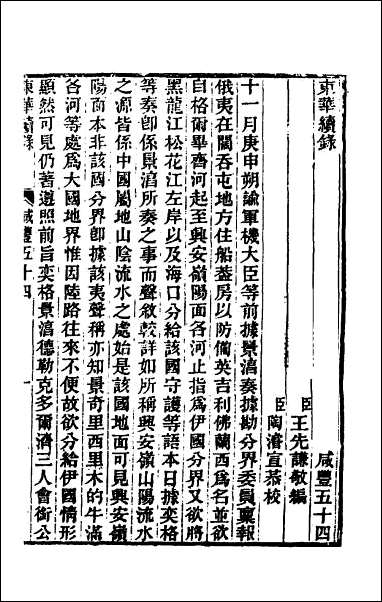 東華續錄 咸豐五十四
臣王先謙敬編
臣陶濬宣恭校
十一月庚申朔諭軍機大臣等前據景淳奏據勘分界委員稟報
俄夷在闊吞屯地方住船蓋房以防備英吉利佛蘭西爲名並欲
自格爾畢齊河起至興安嶺陽面各河止指爲伊國分界又欲將
黑龍江松花江左岸以及海口分給該國守護等語本日據奕格
等奏卽係景淳所奏之事而聲敘較詳如所稱興安嶺山陽流水
之源皆係中國屬地山陰流水之處始是該國地面可見興安嶺
陽面本非該國分界卽據該夷聲稱亦知景奇里西里木的牛滿
各河等處爲大國地界惟因陸路往來不便故欲分給伊國情形
顯然可見仍著遵照前旨奕格景淳德勒克多爾濟三人會銜公
東華續錄 咸豐五十四 一